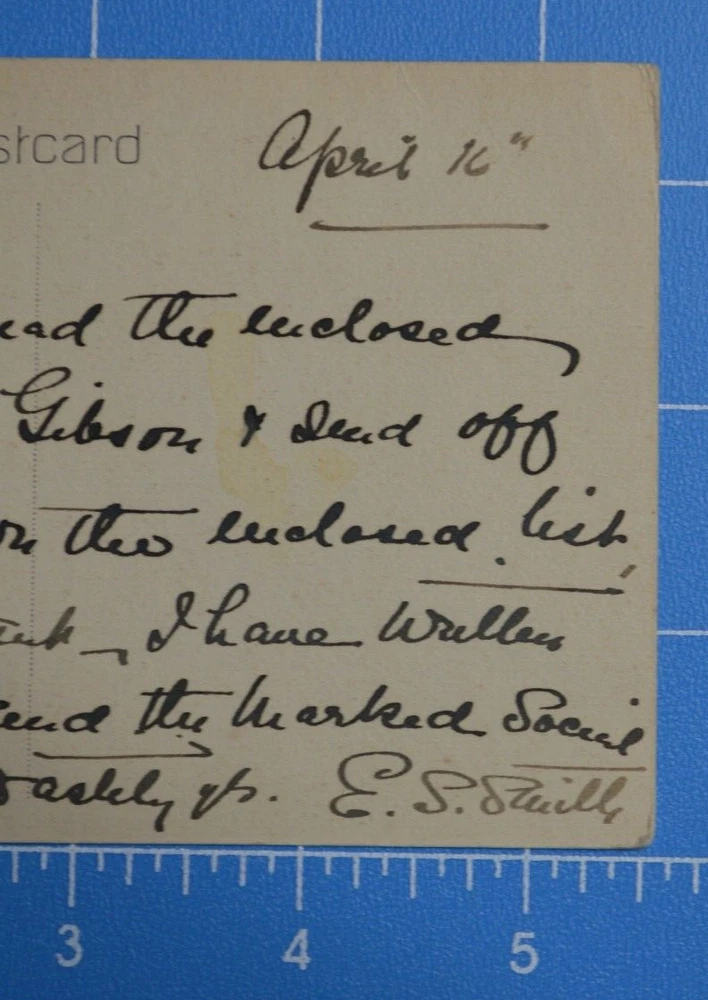 stcard
April 16"
ead the enclosed
Gibson & send off
on the enclosed list,
I have written
end the Marked Social
E. S. Smith
3 4 5